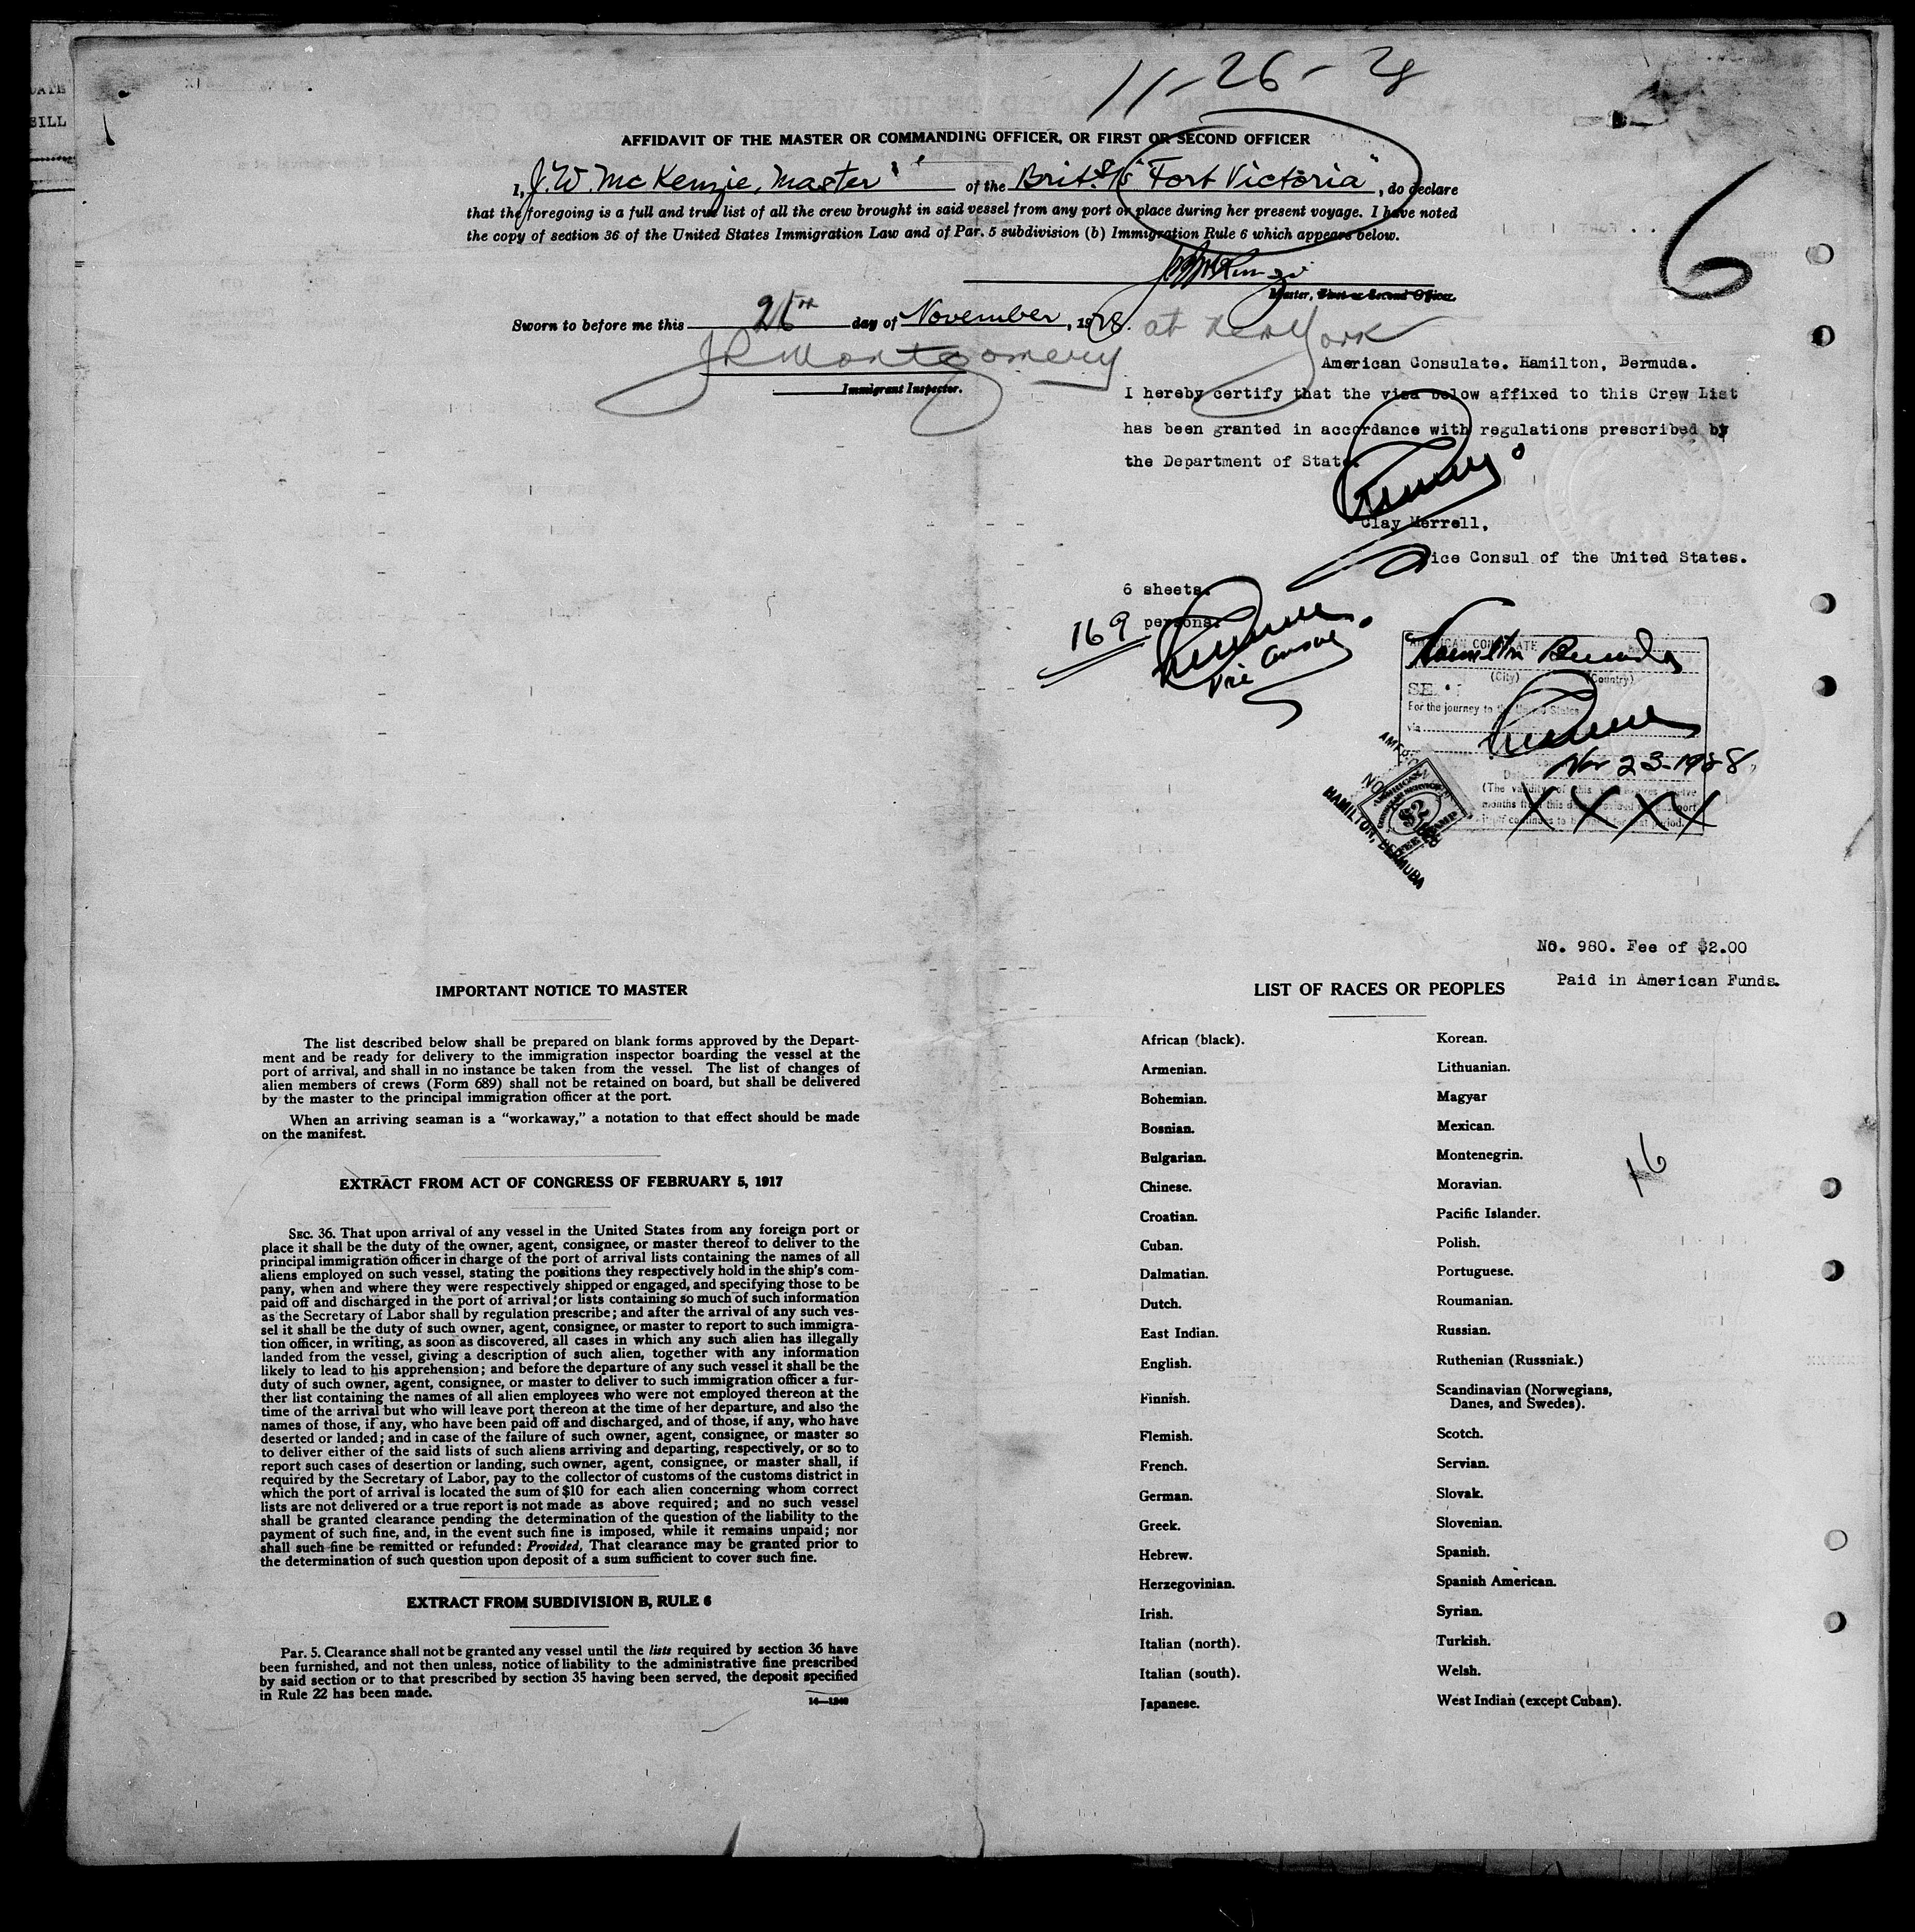 11-26-28
AFFIDAVIT OF THE MASTER OR COMMANDING OFFICER, OR FIRST OR SECOND OFFICER
I, J. W. McKenzie, Master of the Brit. S/S "Fort Victoria", do declare
that the foregoing is a full and true list of all the crew brought in said vessel from any port or place during her present voyage. I have noted
the copy of section 36 of the United States Immigration Law and of Par. 5 subdivision (b) Immigration Rule 6 which appears below.
6
Master, First or Second Officer.
Sworn to before me this 26TH day of November, 1928. at New York
J R Montgomery
Immigrant Inspector.
American Consulate. Hamilton, Bermuda.
I hereby certify that the visa below affixed to this Crew List
has been granted in accordance with regulations prescribed by
the Department of State.
Clay Merrell,
Vice Consul of the United States.
6 sheets.
169 persons.
Vice Consul
AMERICAN CONSULATE
Hamilton Bermuda
(City) (Country)
For the journey to the United States
via
Nov 23-1928
Date
XXXX
AMERICAN
CONSULAR SERVICE
$2
FEE STAMP
HAMILTON, BERMUDA
No. 980. Fee of $2.00
Paid in American Funds.
IMPORTANT NOTICE TO MASTER
The list described below shall be prepared on blank forms approved by the Depart-
ment and be ready for delivery to the immigration inspector boarding the vessel at the
port of arrival, and shall in no instance be taken from the vessel. The list of changes of
alien members of crews (Form 689) shall not be retained on board, but shall be delivered
by the master to the principal immigration officer at the port.
When an arriving seaman is a "workaway," a notation to that effect should be made
on the manifest.
EXTRACT FROM ACT OF CONGRESS OF FEBRUARY 5, 1917
SEC. 36. That upon arrival of any vessel in the United States from any foreign port or
place it shall be the duty of the owner, agent, consignee, or master thereof to deliver to the
principal immigration officer in charge of the port of arrival lists containing the names of all
aliens employed on such vessel, stating the positions they respectively hold in the ship's com-
pany, when and where they were respectively shipped or engaged, and specifying those to be
paid off and discharged in the port of arrival; or lists containing so much of such information
as the Secretary of Labor shall by regulation prescribe; and after the arrival of any such ves-
sel it shall be the duty of such owner, agent, consignee, or master to report to such immigra-
tion officer, in writing, as soon as discovered, all cases in which any such alien has illegally
landed from the vessel, giving a description of such alien, together with any information
likely to lead to his apprehension; and before the departure of any such vessel it shall be the
duty of such owner, agent, consignee, or master to deliver to such immigration officer a fur-
ther list containing the names of all alien employees who were not employed thereon at the
time of the arrival but who will leave port thereon at the time of her departure, and also the
names of those, if any, who have been paid off and discharged, and of those, if any, who have
deserted or landed; and in case of the failure of such owner, agent, consignee, or master so
to deliver either of the said lists of such aliens arriving and departing, respectively, or so to
report such cases of desertion or landing, such owner, agent, consignee, or master shall, if
required by the Secretary of Labor, pay to the collector of customs of the customs district in
which the port of arrival is located the sum of $10 for each alien concerning whom correct
lists are not delivered or a true report is not made as above required; and no such vessel
shall be granted clearance pending the determination of the question of the liability to the
payment of such fine, and, in the event such fine is imposed, while it remains unpaid; nor
shall such fine be remitted or refunded: Provided, That clearance may be granted prior to
the determination of such question upon deposit of a sum sufficient to cover such fine.
EXTRACT FROM SUBDIVISION B, RULE 6
Par. 5. Clearance shall not be granted any vessel until the lists required by section 36 have
been furnished, and not then unless, notice of liability to the administrative fine prescribed
by said section or to that prescribed by section 35 having been served, the deposit specified
in Rule 22 has been made.
14—1240
LIST OF RACES OR PEOPLES
African (black).
Armenian.
Bohemian.
Bosnian.
Bulgarian.
Chinese.
Croatian.
Cuban.
Dalmatian.
Dutch.
East Indian.
English.
Finnish.
Flemish.
French.
German.
Greek.
Hebrew.
Herzegovinian.
Irish.
Italian (north).
Italian (south).
Japanese.
Korean.
Lithuanian.
Magyar
Mexican.
Montenegrin.
Moravian.
Pacific Islander.
Polish.
Portuguese.
Roumanian.
Russian.
Ruthenian (Russniak.)
Scandinavian (Norwegians,
Danes, and Swedes).
Scotch.
Servian.
Slovak.
Slovenian.
Spanish.
Spanish American.
Syrian.
Turkish.
Welsh.
West Indian (except Cuban).
16